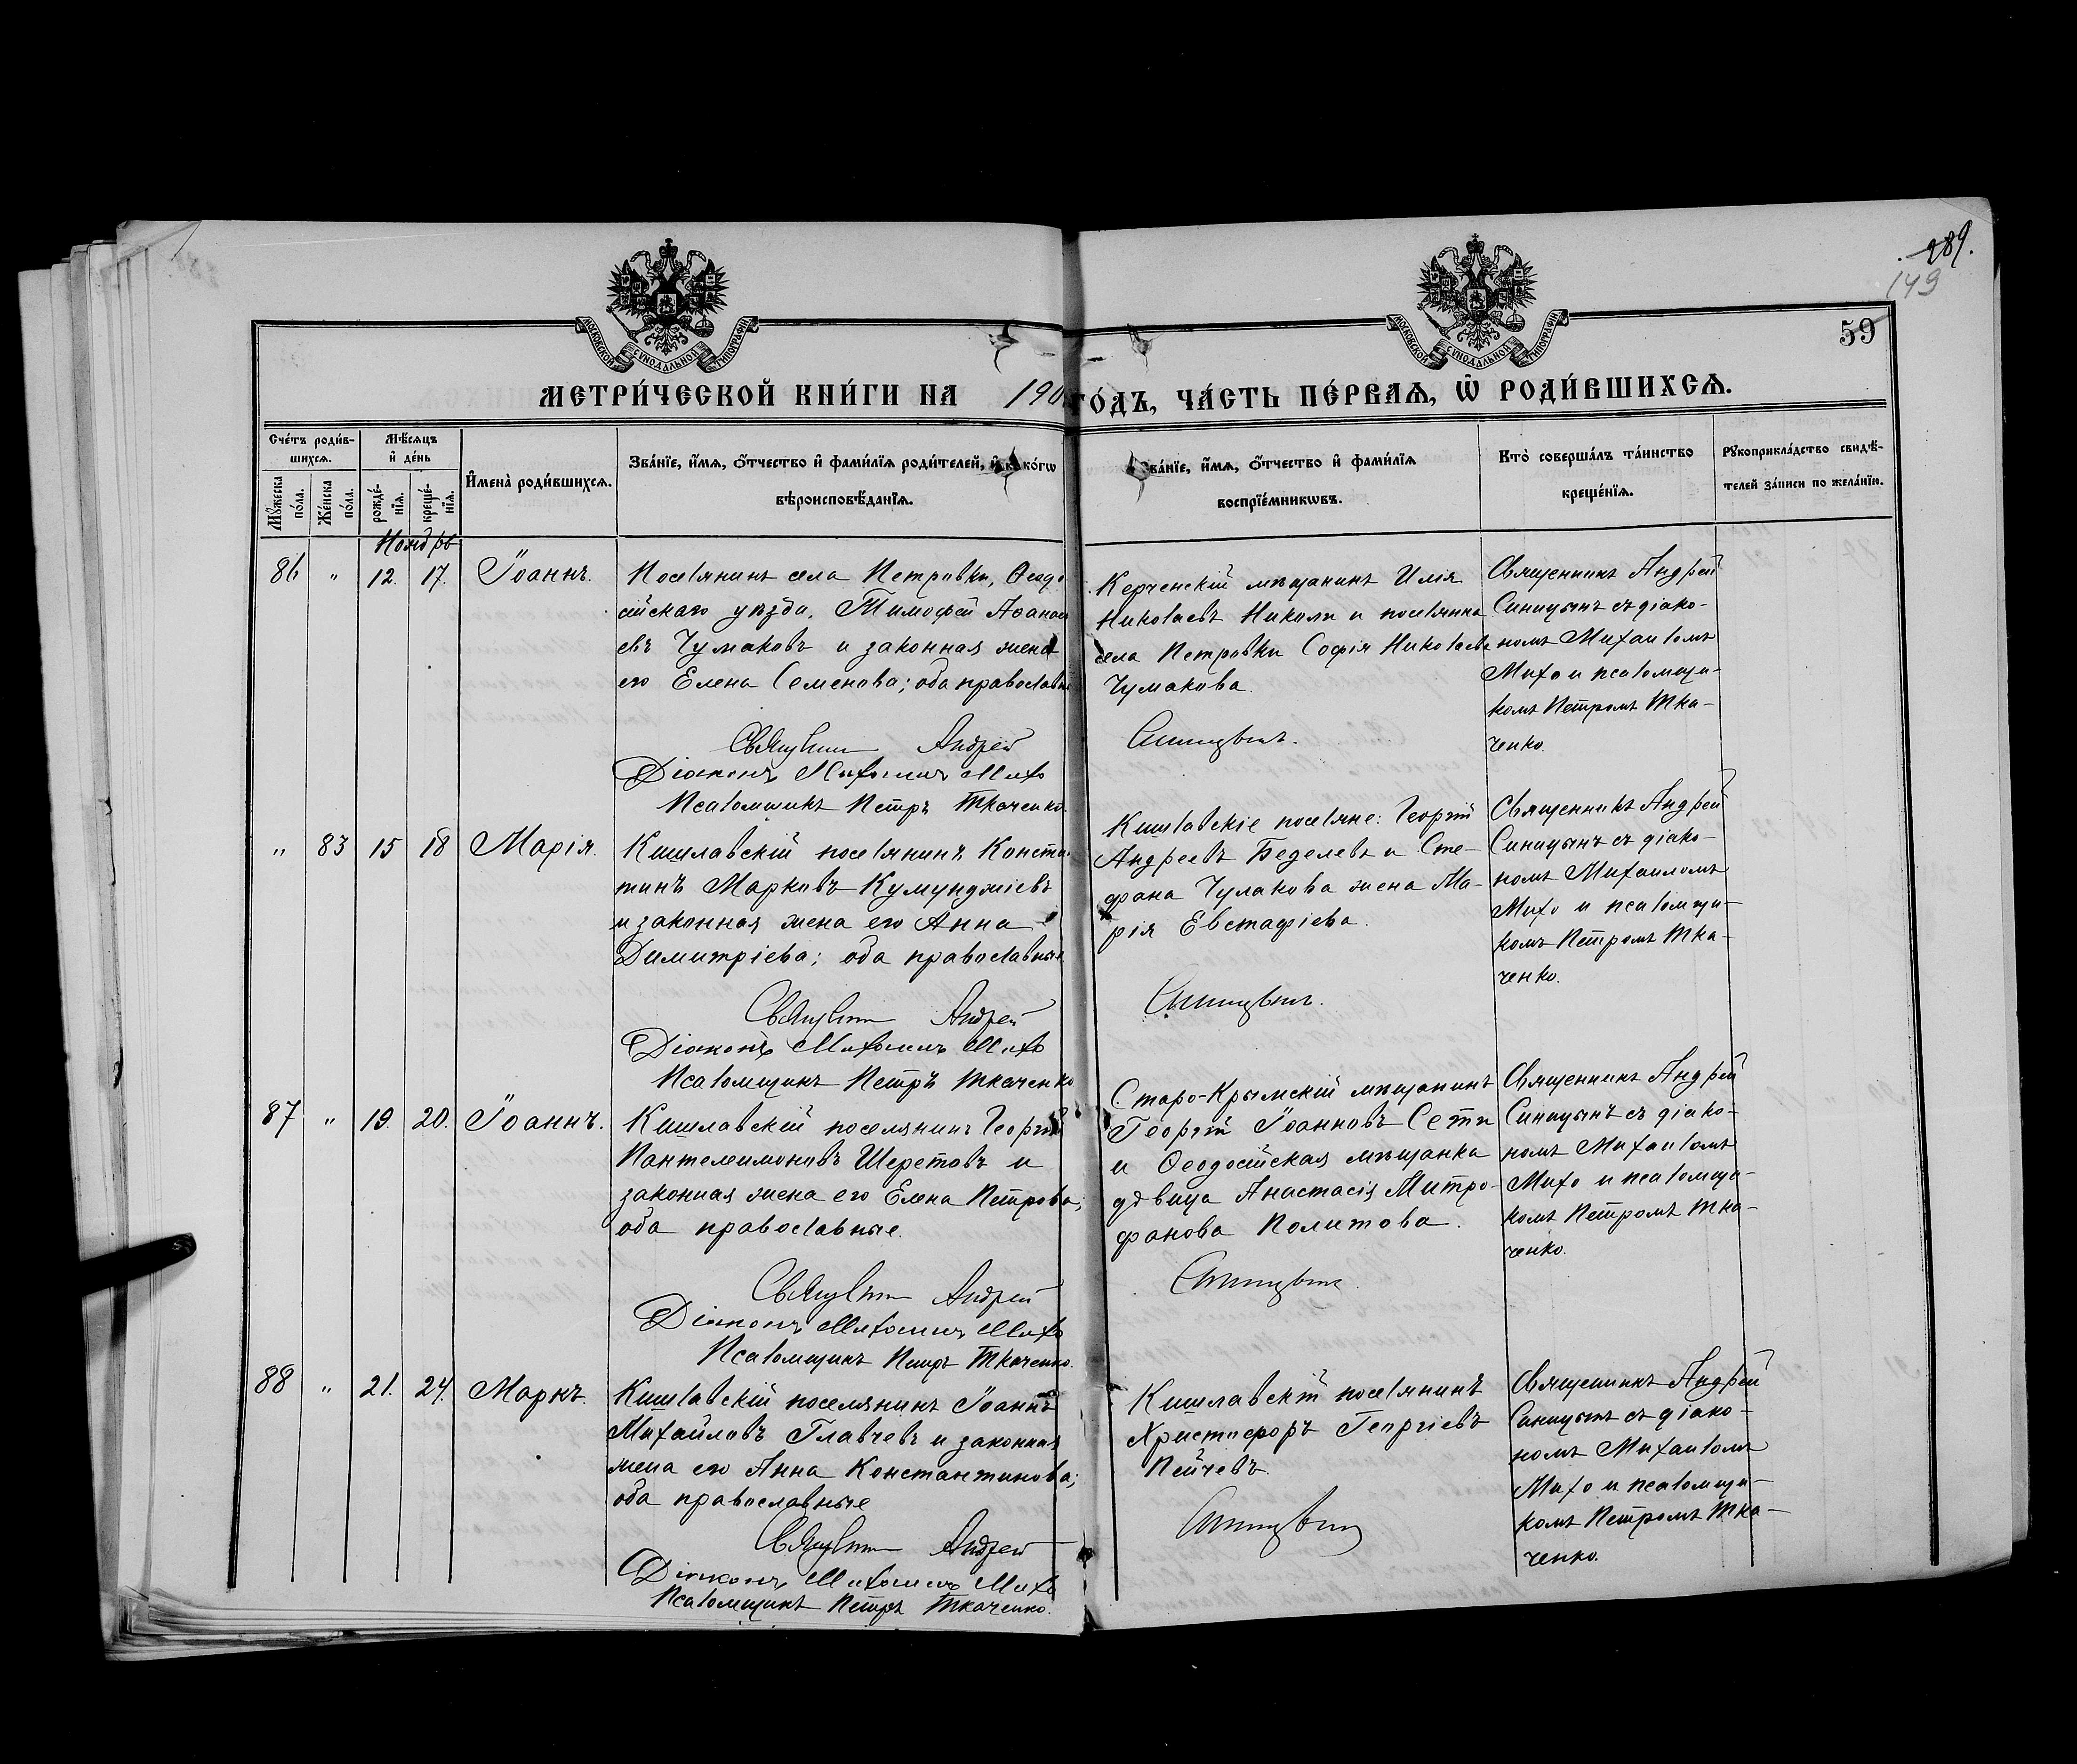 289.
149
59
МОСКОВСКОЙ СѴНОДАЛЬНОЙ ТИПОГРАФІИ
МОСКОВСКОЙ СѴНОДАЛЬНОЙ ТИПОГРАФІИ
МЕТРИ́ЧЕСКОЙ КНИ́ГИ НА 190
ГО́ДЪ, ЧА́СТЬ ПЕ́РВАѦ, Ѡ РОДИ́ВШИХСѦ.
Сче́тъ роди́в-
шихсѧ.
Мꙋ́жеска по́ла.
Же́нска по́ла.
Мѣ́сѧцъ
и҆ де́нь
рожде́-
нїѧ.
креще́-
нїѧ.
И҆мена̀ роди́вшихсѧ.
Зва́нїе, и҆́мѧ, ѻ҆́тчество и҆ фами́лїѧ роди́телей, и҆ како́гѡ
вѣроисповѣ́данїѧ.
Зва́нїе, и҆́мѧ, ѻ҆́тчество и҆ фами́лїѧ
воспрїе́мникѡвъ.
Кто̀ соверша́лъ та́инство
креще́нїѧ.
Рꙋкоприкла́дство свидѣ́-
телей за́писи по жела́нїю.
Ноябрь
86 " 12. 17. Іоаннъ.
Поселянинъ села Петровки, Ѳеодо
сійскаго уѣзда, Тимофей Аѳанась
евъ Чумаковъ и законная жена
его Елена Семенова; оба православн
Священникъ Андрей
Діаконъ Михаилъ Михо
Псаломщикъ Петръ Ткаченко.
Керченскій мѣщанинъ Илія
Николаевъ Николи и поселянка
села Петровки Софія Николаева
Чумакова.
Синицынъ.
Священникъ Андрей
Синицынъ съ діако-
номъ Михаиломъ
Михо и псаломщи-
комъ Петромъ Тка-
ченко.
" 83 15 18 Марія.
Кишлавскій поселянинъ Конста
тинъ Марковъ Кумунджіевъ
и законная жена его Анна
Димитріева; оба православные
Священникъ Андрей
Діаконъ Михаилъ Михо
Псаломщикъ Петръ Ткаченко
Кишлавскіе поселяне: Георгій
Андреевъ Беделевъ и Сте-
фана Чулакова жена Ма-
рія Евстафіева.
Синицынъ.
Священникъ Андрей
Синицынъ съ діако-
номъ Михаиломъ
Михо и псаломщи-
комъ Петромъ Тка-
ченко.
87 " 19. 20. Іоаннъ.
Кишлавскій поселянинъ Георгій
Пантелеимоновъ Шеретовъ и
законная жена его Елена Петрова;
оба православные.
Священникъ Андрей
Діаконъ Михаилъ Михо
Псаломщикъ Петръ Ткаченко.
Старо-Крымскій мѣщанинъ
Георгій Іоанновъ Сети
и Ѳеодосійская мѣщанка
дѣвица Анастасія Митро-
фанова Политова.
Синицынъ.
Священникъ Андрей
Синицынъ съ діако-
номъ Михаиломъ
Михо и псаломщи-
комъ Петромъ Тка-
ченко.
88 " 21. 24. Маркъ.
Кишлавскій поселянинъ Іоаннъ
Михайловъ Главчевъ и законная
жена его Анна Константинова;
оба православные
Священникъ Андрей
Діаконъ Михаилъ Михо
Псаломщикъ Петръ Ткаченко.
Кишлавскій поселянинъ
Христофоръ Георгіевъ
Пейчевъ.
Синицынъ
Священникъ Андрей
Синицынъ съ діако-
номъ Михаиломъ
Михо и псаломщи-
комъ Петромъ Тка-
ченко.